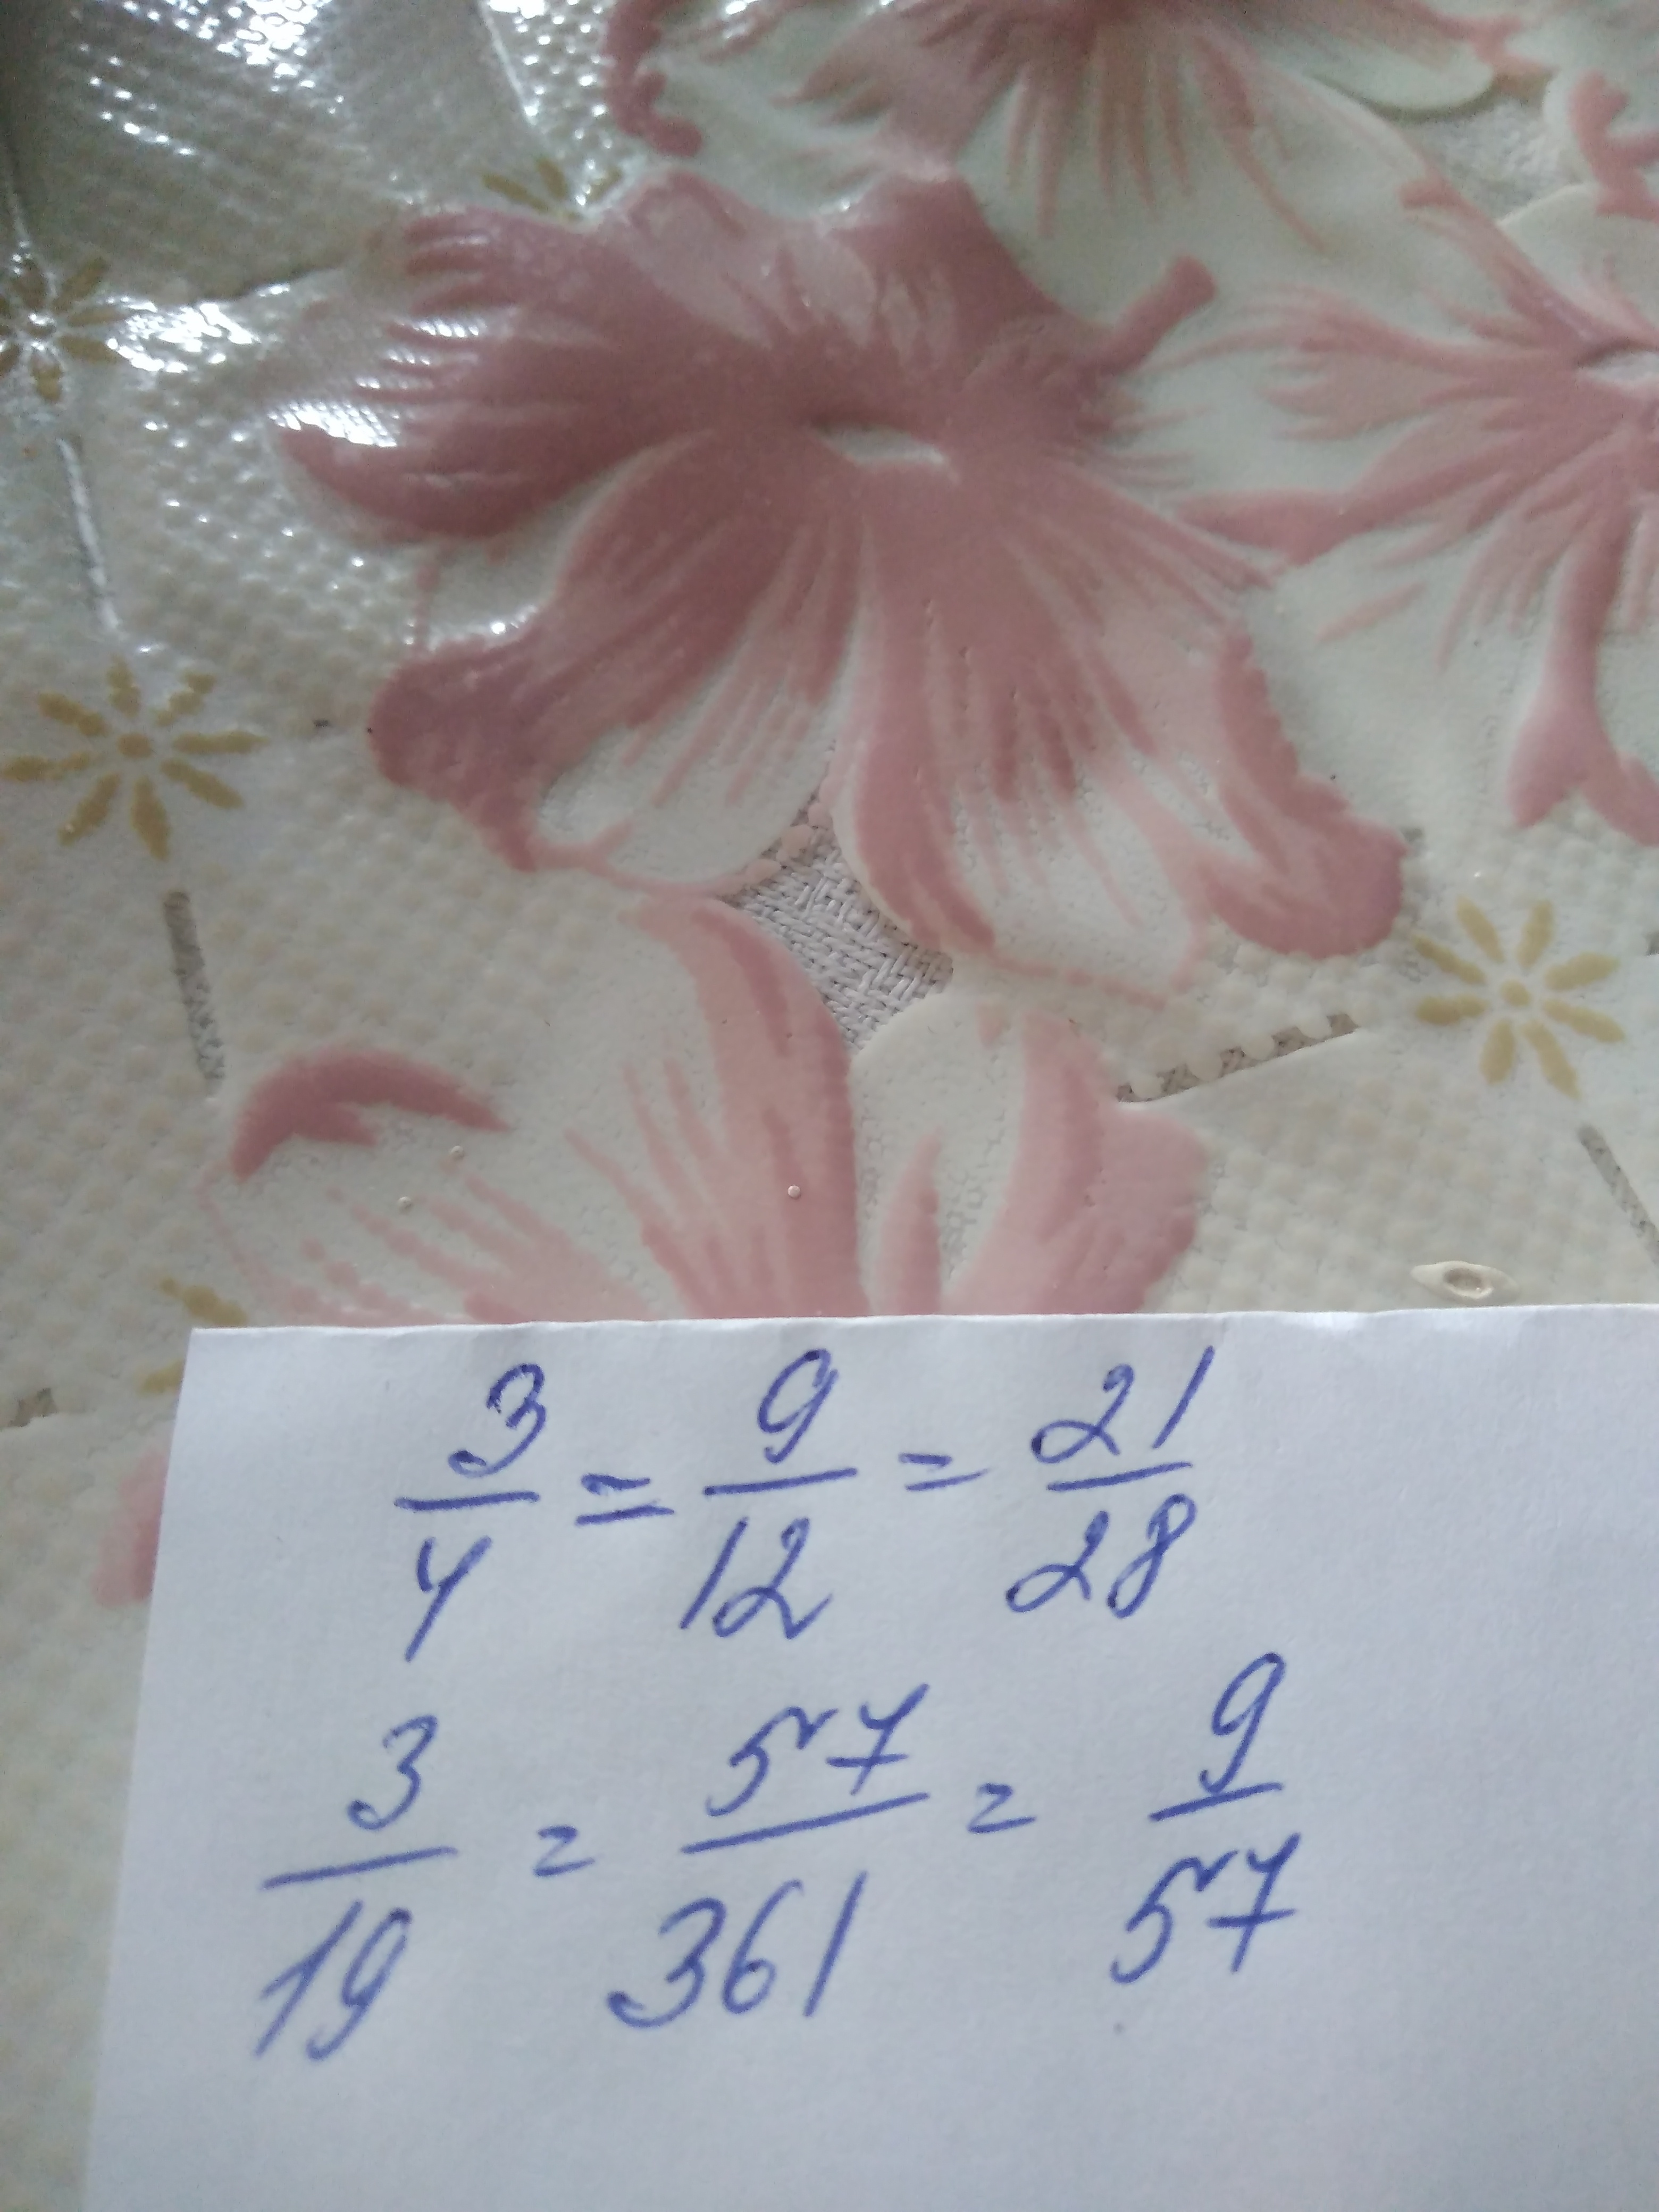 3/4 = 9/12 = 21/28
3/19 = 57/361 = 9/57